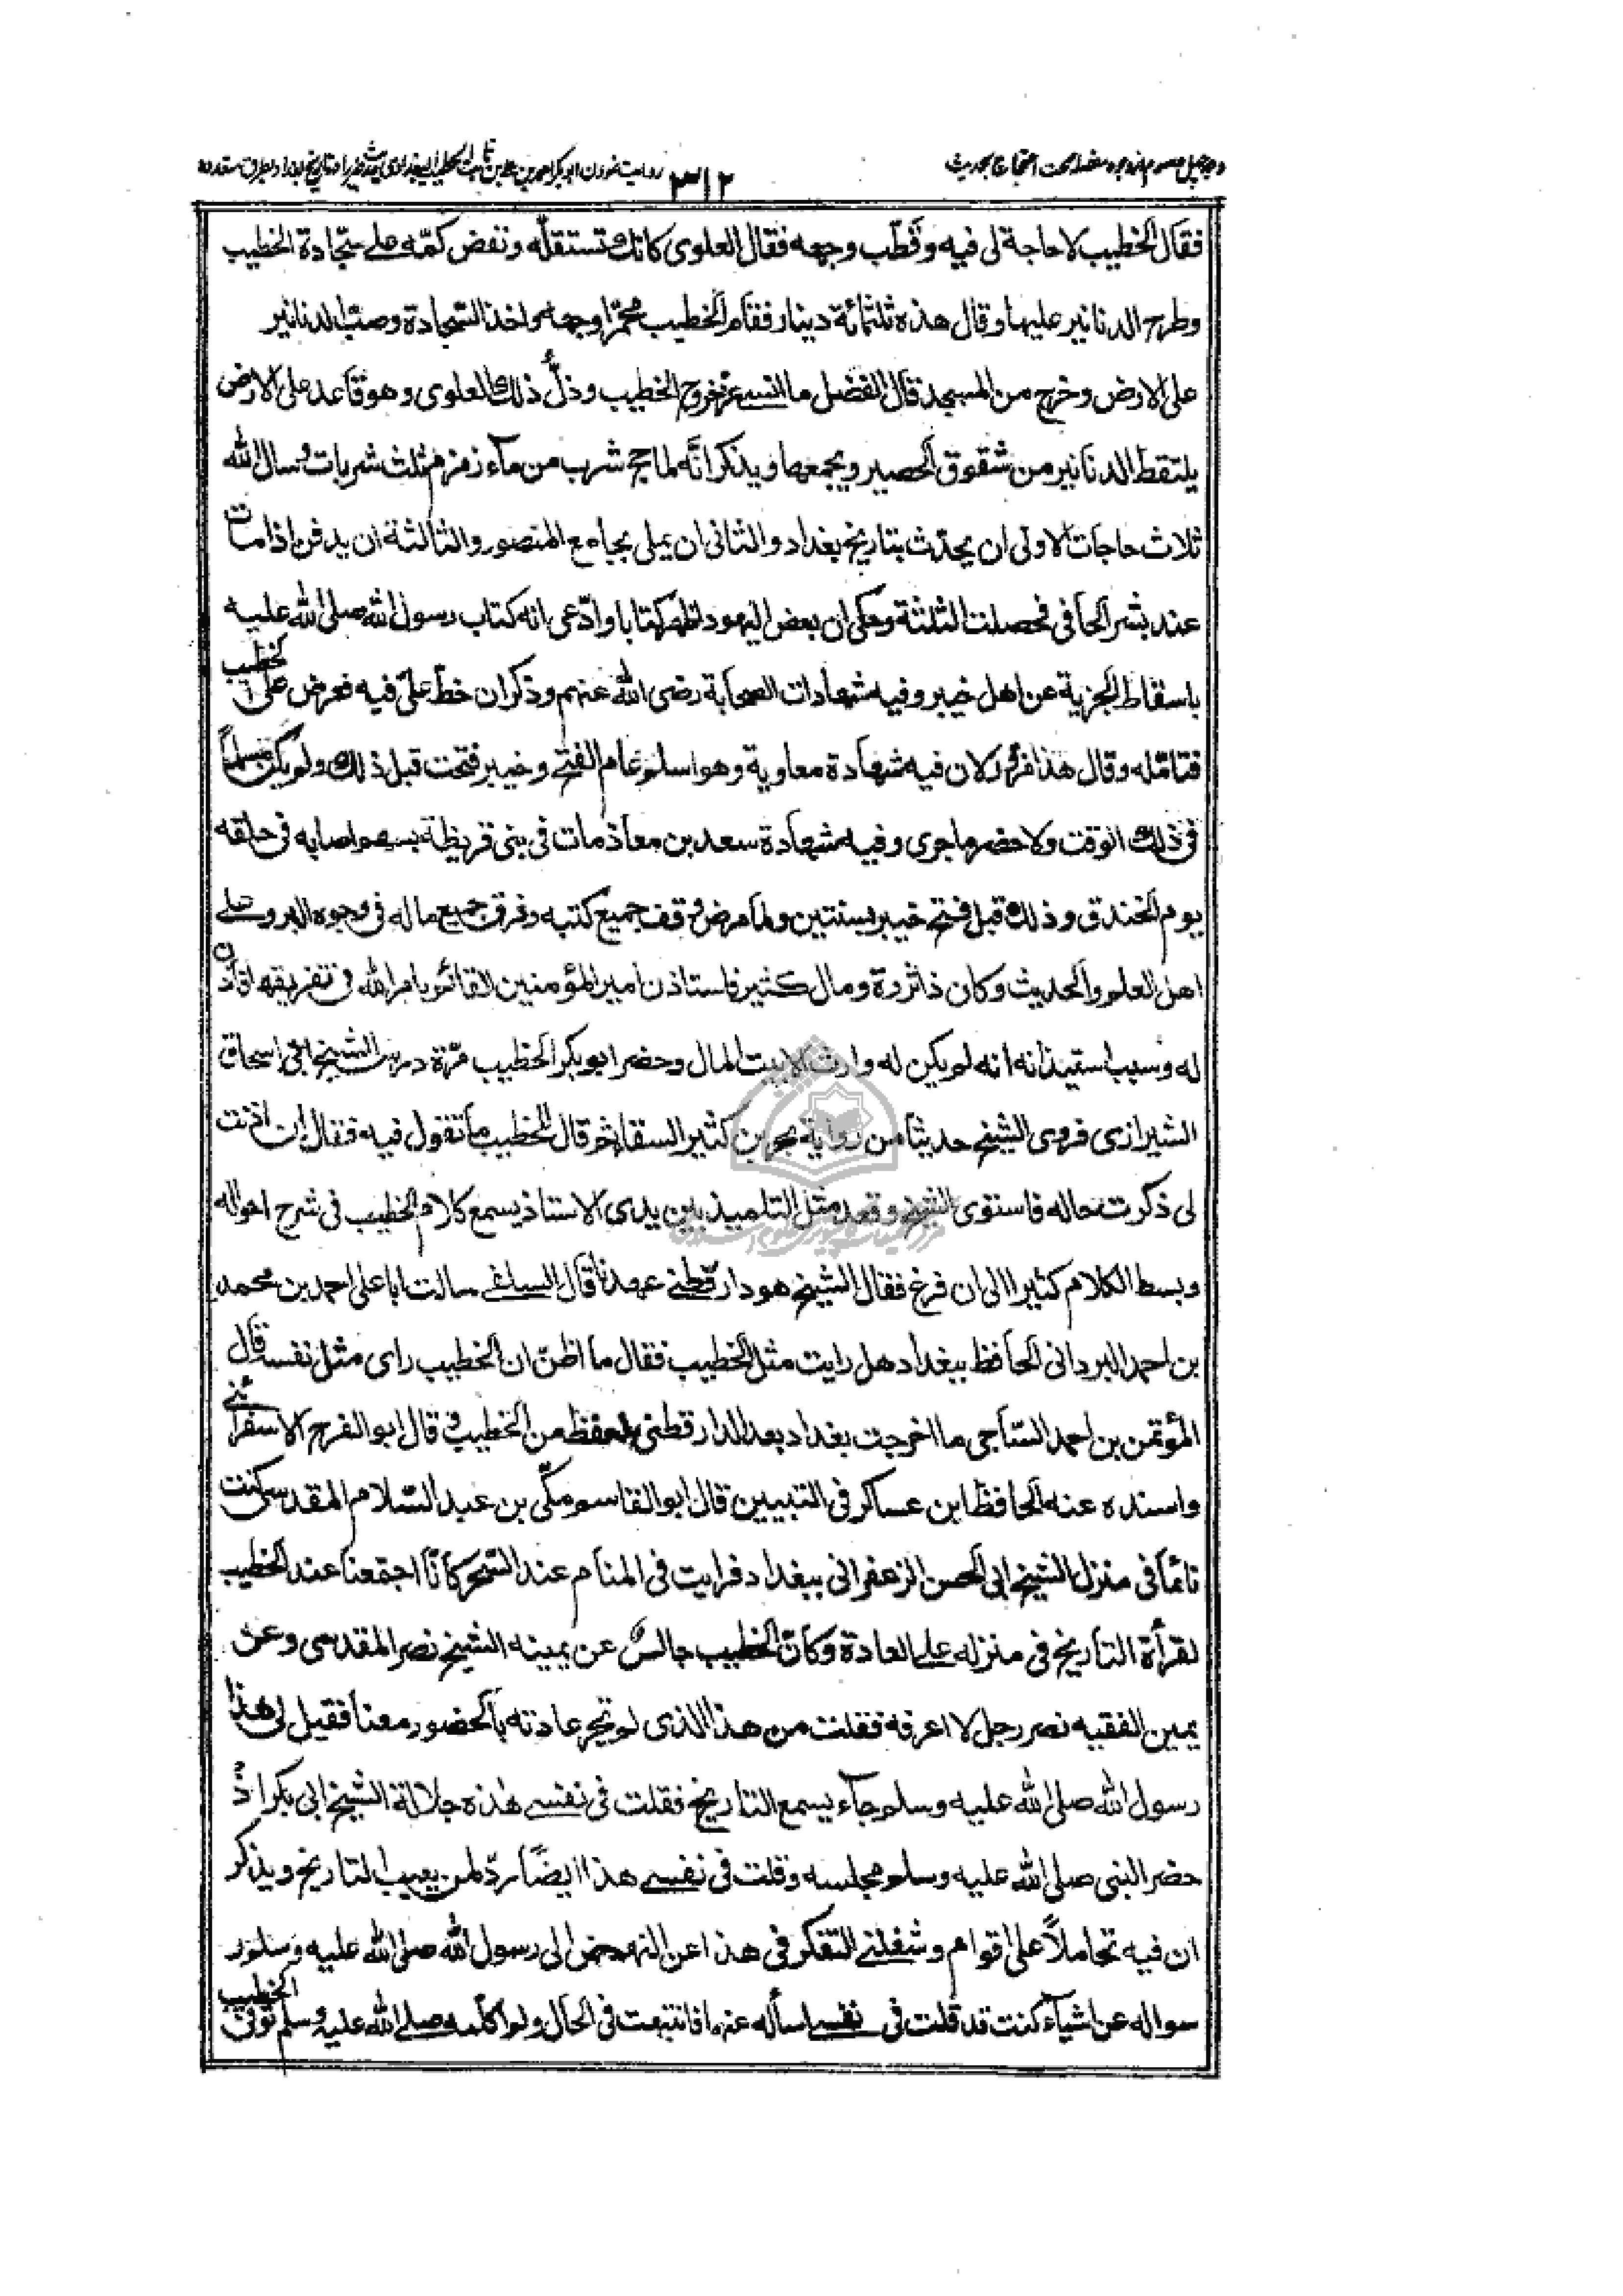 روايت نمودن ابو بكر احمد بن على بن ثابت الخطيب البغدادى حديث را در تاريخ بغداد بطرق متعدده
٣١٢
فقال الخطيب لا حاجة لى فيه وقطّب وجهه فقال العلوى كانك تستقلّه ونفض كمّه على سجّادة الخطيب
وطرح الدنانير عليها وقال هذه ثلثمائة دينار فقام الخطيب محمّرا وجهه واخذ السّجادة وصبّ الدنانير
على الارض وخرج من المسجد قال الفضل ما انسى عز خروج الخطيب وذلّ ذلك العلوى وهو قاعد على الارض
يلتقط الدنانير من شقوق الحصير ويجمعها ويذكر انّه لما حج شرب من ماء زمزم ثلث شربات وسال الله
ثلاث حاجات الاولى ان يحدّث بتاريخ بغداد والثانى ان يملى بجامع المنصور والثالثة ان يدفن اذا مات
عند بشر الحافى فحصلت الثلثة وحكى ان بعض اليهود اظهر كتابا وادّعى انه كتاب رسول الله صلى الله عليه
باسقاط الجزية عن اهل خيبر وفيه شهادات الصحابة رضى الله عنهم وذكر ان خطّ علىّ فيه فعرض على الخطيب
فتامّله وقال هذا مزوّر لان فيه شهادة معاوية وهو اسلم عام الفتح وخيبر فتحت قبل ذلك ولم يكن مسلماً
فى ذلك الوقت ولا حضر ما جرى وفيه شهادة سعد بن معاذ مات فى بنى قريظة بسهم اصابه فى حلقه
يوم الخندق وذلك قبل فتح خيبر بسنتين ولما مرض وقف جميع كتبه وفرق جميع ماله فى وجوه البر وعلى
اهل العلم والحديث وكان ذا ثروة ومال كثير فاستاذن امير المؤمنين القائم بامر الله فى تفريقها فاذن
له وسبب استيذانه انه لم يكن له وارث الا بيت المال وحضر ابو بكر الخطيب مرّة درس الشيخ ابى اسحاق
الشيرازى فروى الشيخ حديثا من رواية بحر بن كثير السقا ثم قال للخطيب ما تقول فيه فقال ان اذنت
لى ذكرت حاله فاستوى الشيخ وقعد مثل التلميذ بين يدى الاستاذ يسمع كلام الخطيب فى شرح احواله
وبسط الكلام كثيرا الى ان فرغ فقال الشيخ هو دارقطنى عهدنا قال السلفى سالت ابا على احمد بن محمد
بن احمد البردانى الحافظ ببغداد هل رايت مثل الخطيب فقال ما اظنّ ان الخطيب راى مثل نفسه قال
المؤتمن بن احمد السّاجى ما اخرجت بغداد بعد الدارقطنى احفظ من الخطيب وقال ابو الفرج الاسفرائنى
واسنده عنه الحافظ ابن عساكر فى التبيين قال ابو القاسم مكّى بن عبد السّلام المقدسى كنت
نائماً فى منزل الشيخ ابى الحسن الزعفرانى ببغداد فرايت فى المنام عند السّحر كانّا اجتمعنا عند الخطيب
لقرأة التاريخ فى منزله على العادة وكان الخطيب جالس عن يمينه الشيخ نصر المقدسى وعن
يمين الفقيه نصر رجل لا اعرفه فقلت من هذا الذى لم تجر عادته بالحضور معنا فقيل لى هذا
رسول الله صلى الله عليه وسلم جاء يسمع التاريخ فقلت فى نفسى هذه جلالة الشيخ ابى بكر اذ
حضر النبى صلى الله عليه وسلم مجلسه وقلت فى نفسى هذا ايضاً ردّ لمن يعيب التاريخ ويذكر
ان فيه تحاملاً على اقوام وشغلنى التفكر فى هذا عن النهوض الى رسول الله صلى الله عليه وسلم و
سواله عن اشياء كنت قد قلت فى نفسى اسأله عنها فانتبهت فى الحال ولم اكلّمه صلى الله عليه وسلم توفى الخطيب